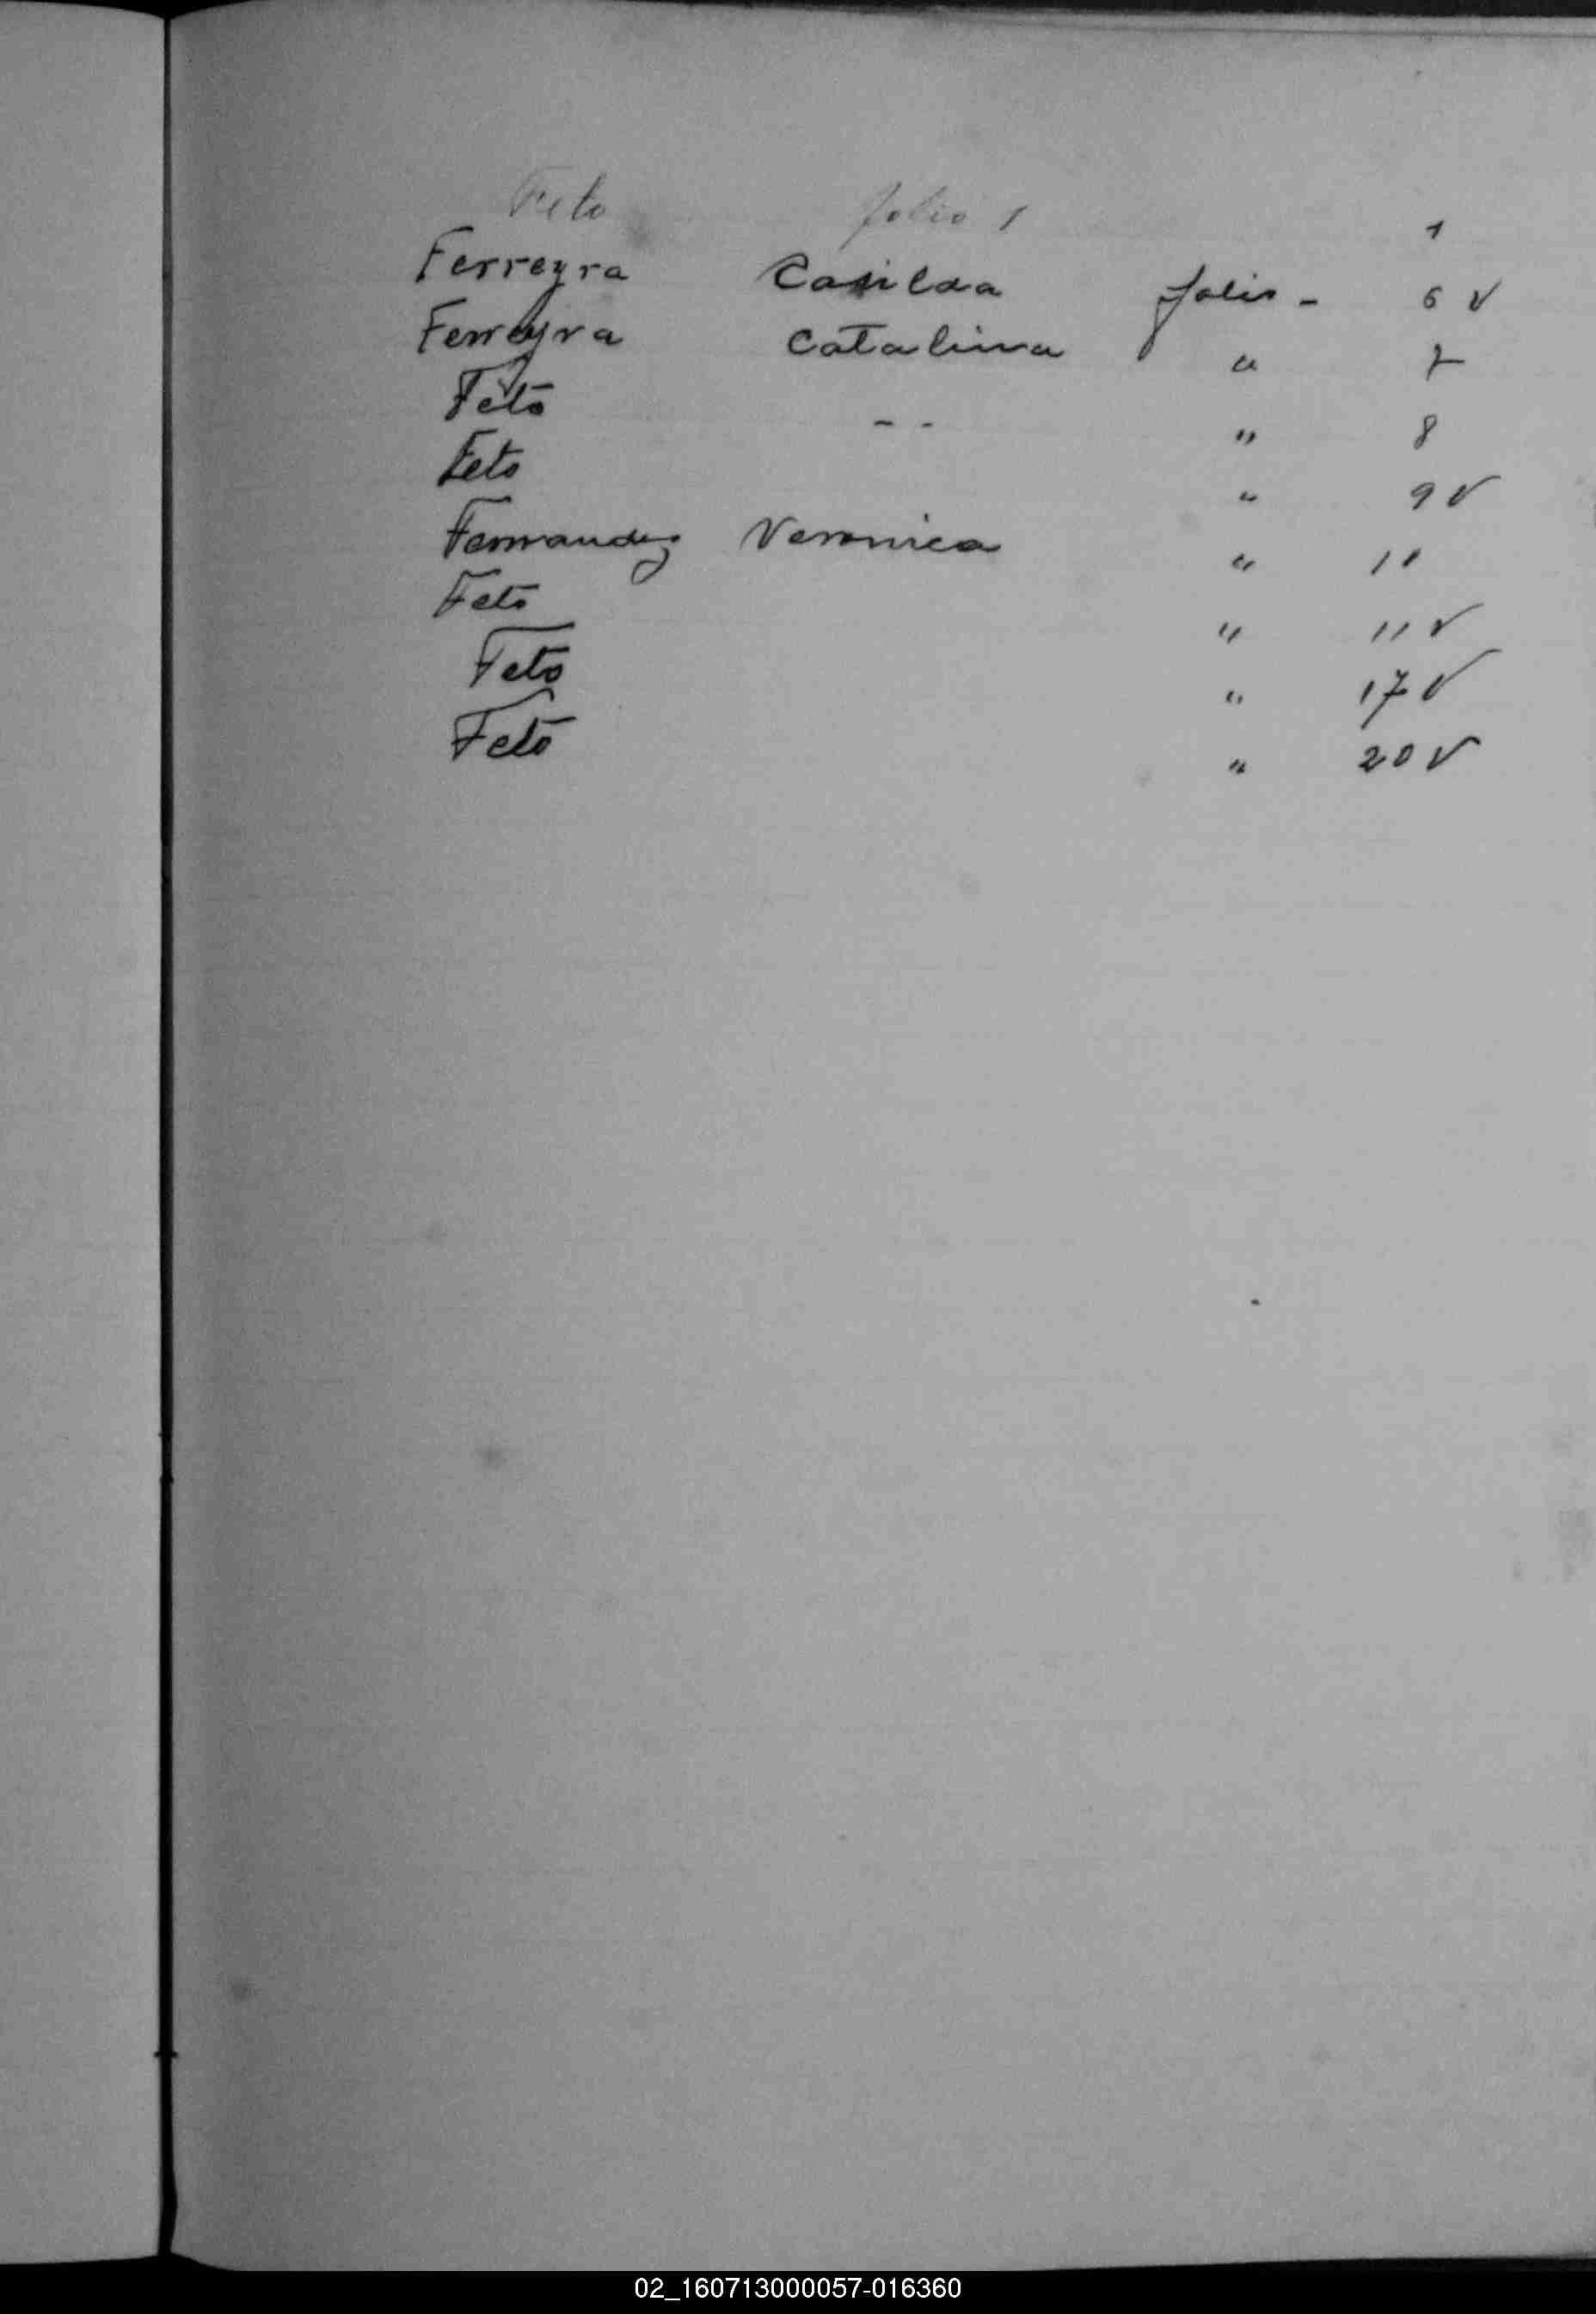 Feto folio 1 1
Ferreyra Casilda folio - 6 v
Ferreyra Catalina " 7
Feto - - " 8
Feto " 9 v
Fernandez Veronica " 10
Feto " 11 v
Feto " 17 v
Feto " 20 v
02_160713000057-016360